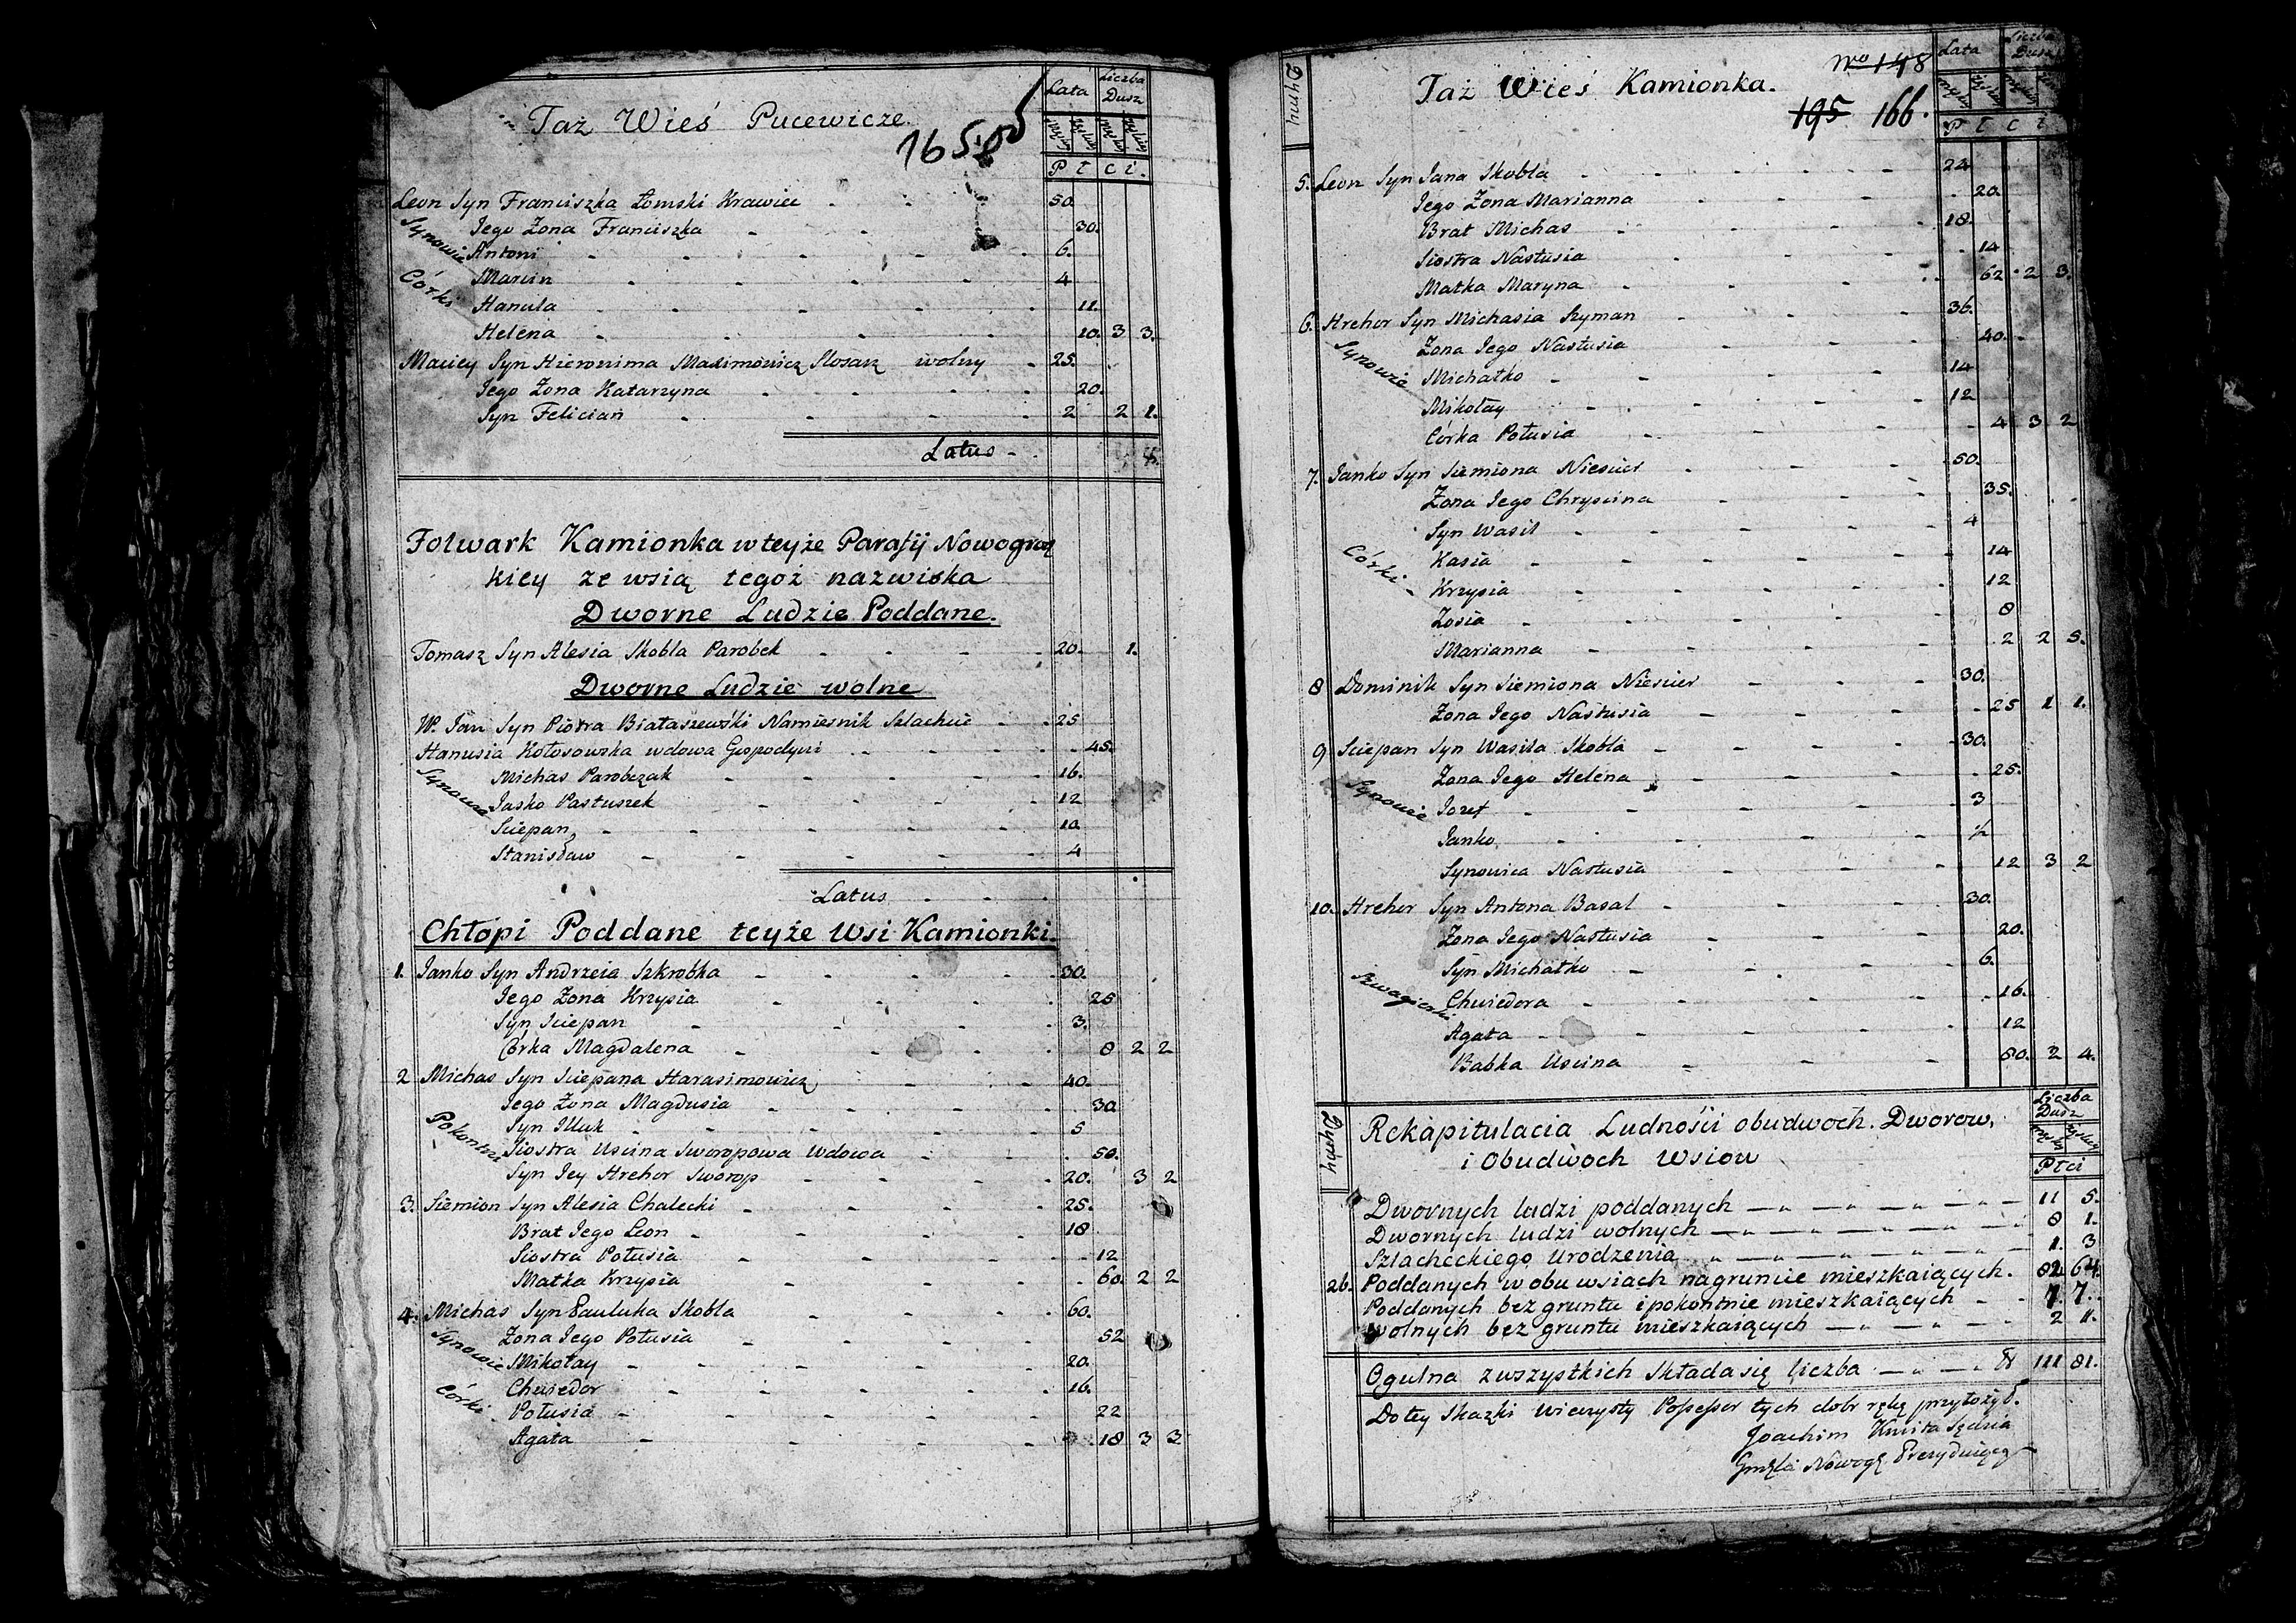 Taż Wieś Pucewicze.
165
Lata Liczba Dusz
P ł c i.
Leon Syn Franciszka Łomski Krawiec 50.
Jego Żona Franciszka 30.
Synowie Antoni 6.
Marcin 4
Córki Hanula 11.
Helena 10. 3 3.
Maciey Syn Hieronima Maximowicz Slosarz wolny 25.
Jego Żona Katarzyna 20.
Syn Felician 2 2 1.
Latus
Folwark Kamionka w teyże Parafij Nowogrodz
kiey ze wsią tegoż nazwiska
Dworne Ludzie Poddane.
Tomasz Syn Alesia Skobla Parobek 20. 1.
Dworne Ludzie wolne
W. Jan Syn Piotra Białaszewski Namiesnik Szlachcic 25
Hanusia Kołosowska wdowa Gospodyni 45.
Synowie Michas Parobczak 16.
Jasko Pastuszek 12
Sciepan 10.
Stanisław 4
Latus
Chłopi Poddane teyże Wsi Kamionki.
1. Janko Syn Andrzeia Szkrobka 30.
Jego Żona Krzysia 25
Syn Sciepan 3.
Córka Magdalena 8 2 2
2 Michas Syn Sciepana Harasimowicz 40.
Jego Żona Magdusia 30.
Syn Illuk 5
Pokontni Siostra Uscina Sworopowa Wdowa 50.
Syn Jey Hrehor Sworop 20. 3 2
3. Siemion Syn Alesia Chalecki 25.
Brat Jego Leon 18
Siostra Połusia 12
Matka Krzysia 60. 2 2
4. Michas Syn Pauluka Skobla 60.
Żona Jego Połusia 52
Synowie Mikołay 20.
Chwiedor 16.
Córki Połusia 22
Agata 18 3 3
Dymy
Taż Wieś Kamionka.
Nro 148
195 166.
Lata Liczba Dusz
P ł c i
5. Leon Syn Jana Skobla 24.
Jego Żona Marianna 20.
Brat Michas 18.
Siostra Nastusia 14
Matka Maryna 62 2 3.
6. Hrehor Syn Michasia Szyman 36.
Żona Jego Nastusia 40.
Synowie Michałko 14
Mikołay 12
Córka Połusia 4 3 2
7. Janko Syn Siemiona Niescier 50.
Żona Jego Chryscina 35.
Syn Wasil 4
Córki Kasia 14
Krzysia 12
Zosia 8
Marianna 2 2 5.
8 Dominik Syn Siemiona Niescier 30.
Żona Jego Nastusia 25 1 1.
9 Sciepan Syn Wasila Skobla 30.
Żona Jego Helena 25.
Synowie Jozef 3
Janko ½
Synowica Nastusia 12 3 2
10. Hrehor Syn Antona Basal 30.
Żona Jego Nastusia 20.
Syn Michałko 6.
Szwagierki Chwiedora 16.
Agata 12
Babka Uscina 80. 2 4.
Dymy
Rekapitulacia Ludności obudwoch Dworow,
i Obudwoch Wsiow
Liczba Dusz
Płci
Dwornych ludzi poddanych 11 5.
Dwornych ludzi wolnych 8 1.
Szlacheckiego Urodzenia 1. 3
26. Poddanych w obu wsiach na gruncie mieszkaiących. 82 64.
Poddanych bez gruntu i pokontnie mieszkaiących 7. 7.
Wolnych bez gruntu mieszkaiących 2 1.
Ogulna z wszystkich składa się liczba 111 81.
Do tey Skazki wieczysty Possessor tych dobr rękę przyłożył.
Joachim Kmita Sędzia